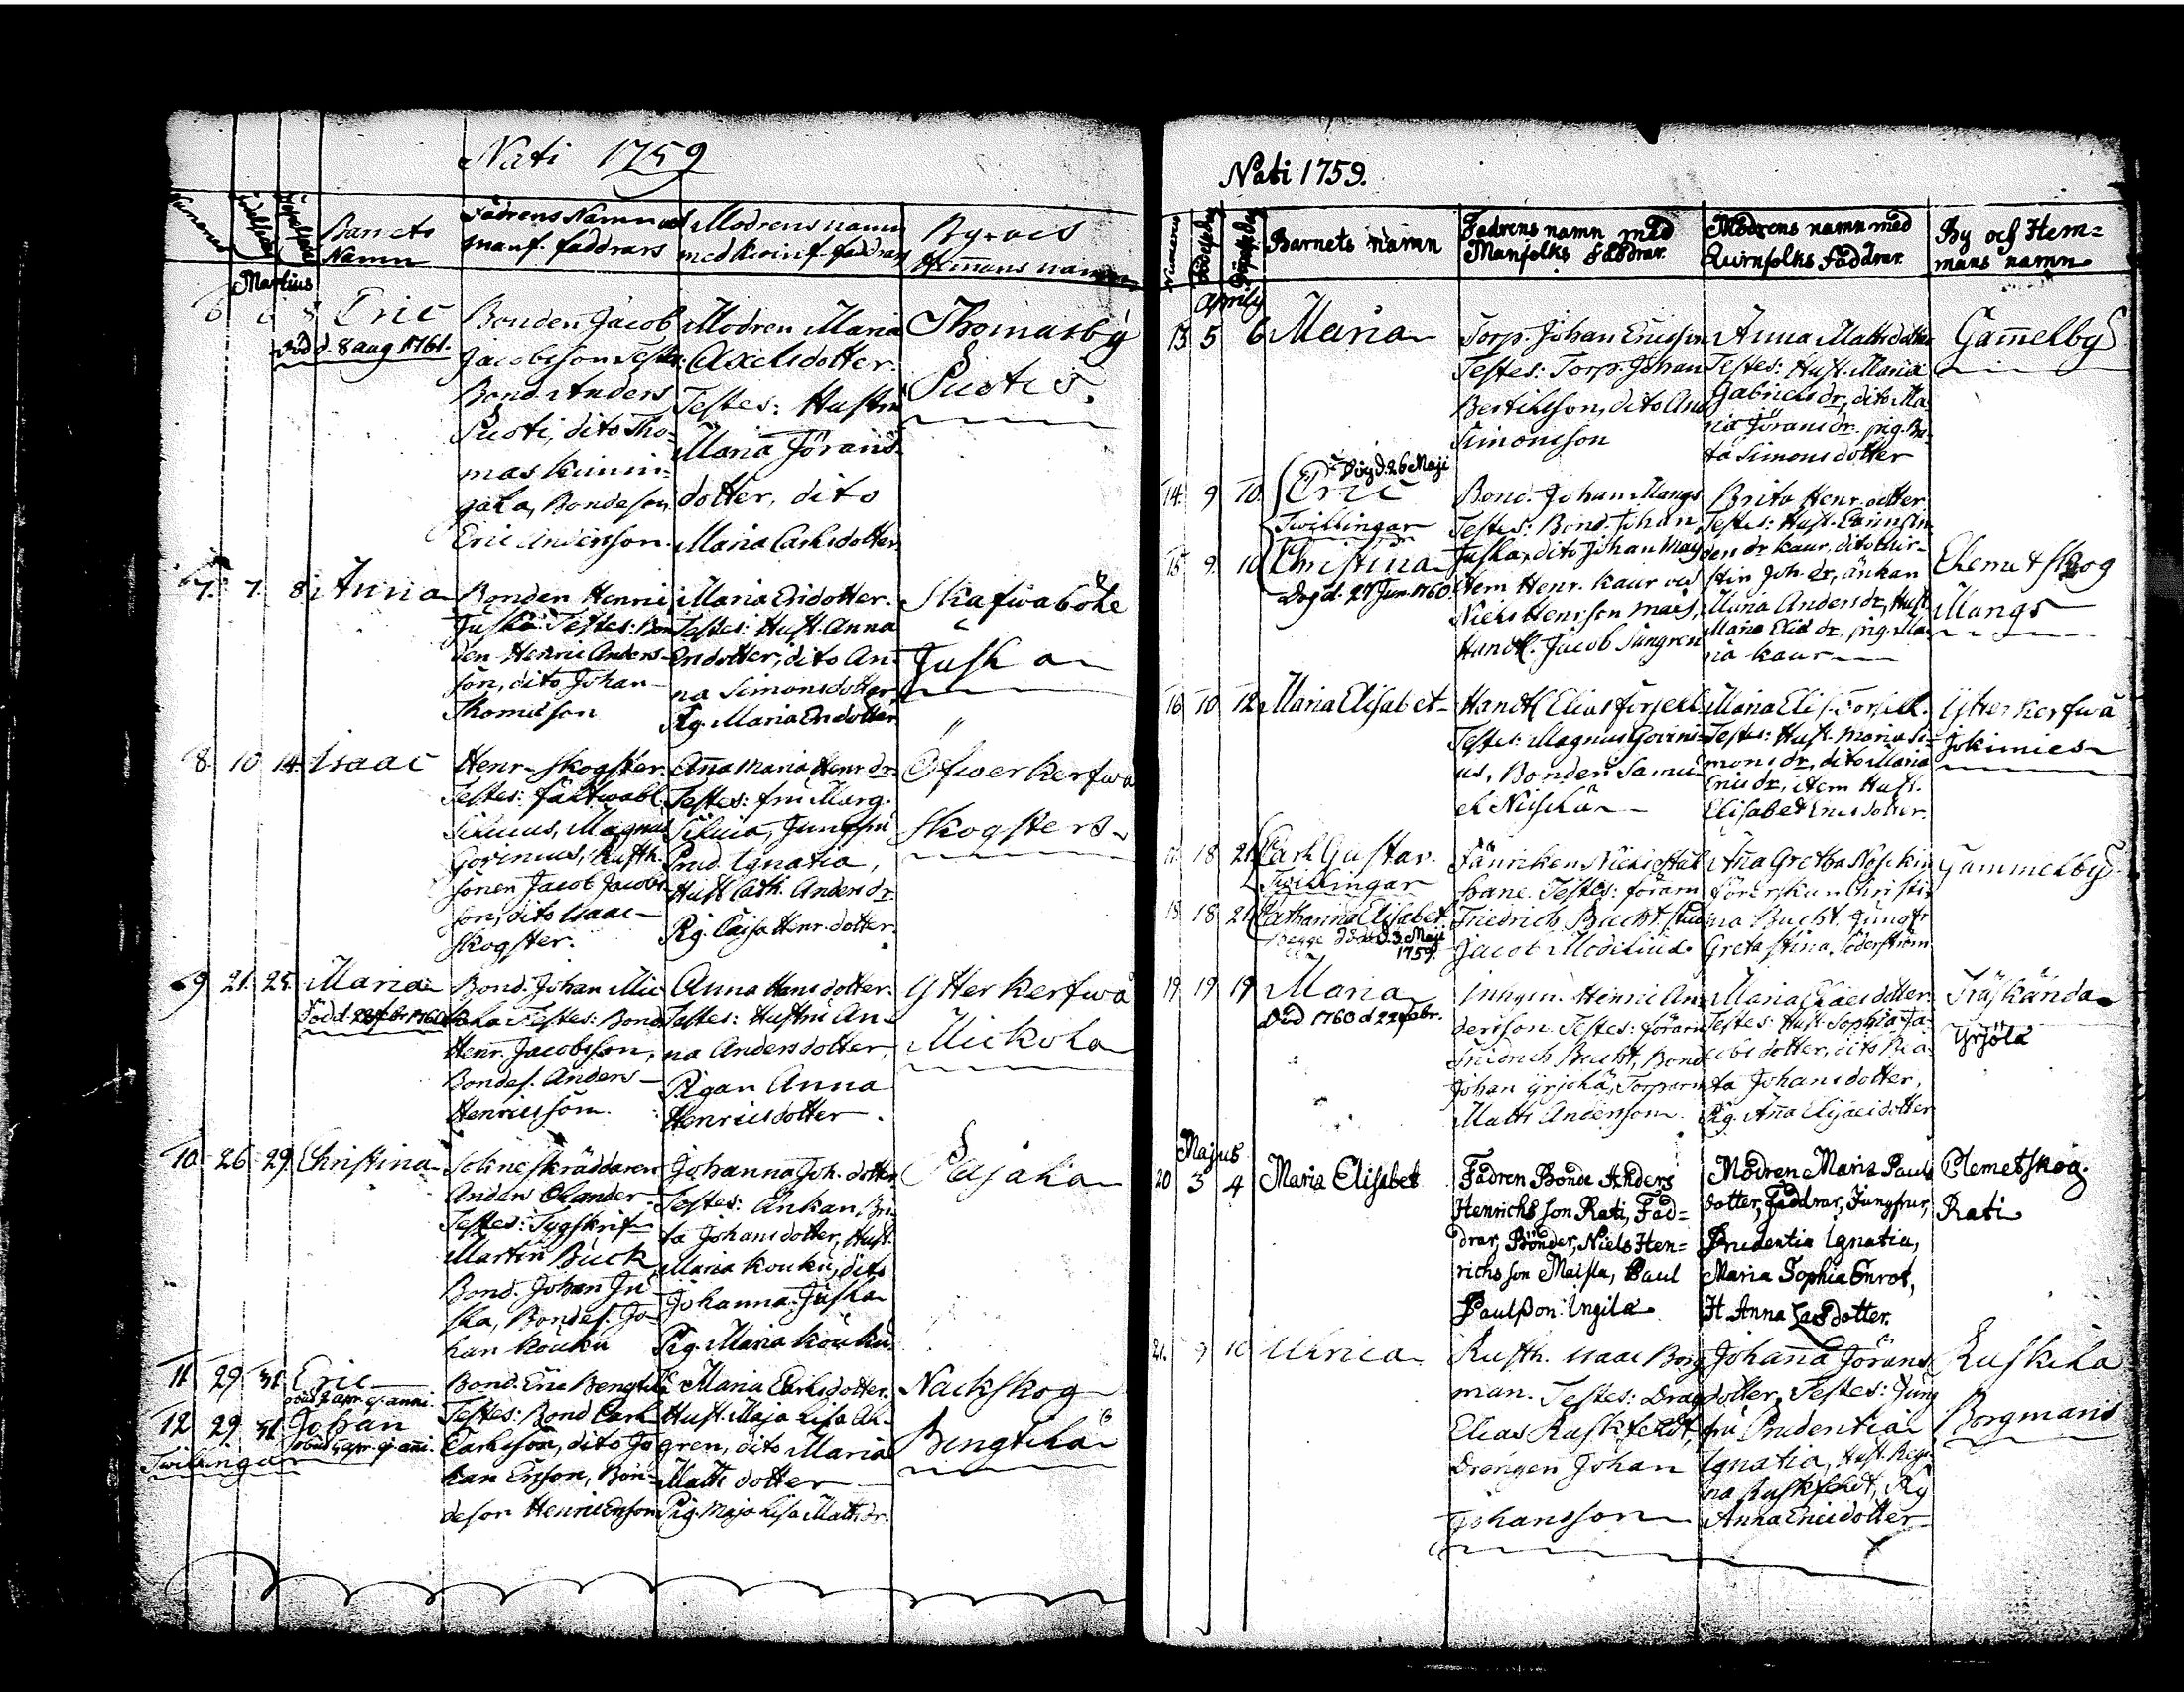 Nati 1759
Numerus
Födelsedag
Döpelsedag
Barnets
Namn
Fädrens Namn med
manf. faddrars
Modrens namn
med kvinf. faddrars
By och
Hemans namn
Martius
6 6 8 Eric
död d. 8 aug 1761.
Bonden Jacob
Jacobsson Testes:
Bond Anders
Puoti, dito Tho-
mas Kunin-
gala, Bondeson
Eric Andersson.
Modren Maria
Axelsdotter.
Testes: Hustru
Maria Jörans-
dotter, dito
Maria Carlsdotter
Thomasby
Puotis.
7. 7. 8. Anna
Bonden Henric
Juska Testes: Bon
den Henric Anders-
son, dito Johan
Thomasson
Maria Ersdotter.
Testes: Hust. Anna
Ersdotter, dito An-
na Simonsdotter
Pig. Maria Ersdotter
Skafwaböle
Juska
8. 10 14. Isaac
Henr. Skogster.
Testes: Fältwäbl.
Silvius, Magnus
Govinius, Rusth.
sönen Jacob Jacobs
son, dito Isaac
Skogster.
Anna Maria Henr. dr.
Testes: fru Marg.
Silvia, Jungfru
Prud. Ignatia,
Hust Cath. Anders dr.
Pig. Caisa Henr. dotter.
Öfwerkerfwa
Skogsters
9 21. 25. Maria
Död d. 28 febr 1760
Bond. Johan Mic
kola Testes: Bond
Henr. Jacobsson,
Bondes. Anders
Henricsson.
Anna Hans dotter.
Testes: Hustru An-
na Andersdotter,
Pigan Anna
Henricsdotter.
Ytterkerfwa
Mickola
10. 26. 29. Christina
Sockneskräddaren
Anders Olander.
Testes: Tygskrif
Martin Buck
Bond. Johan Ju-
ska, Bondes. Jo-
han Kouku
Johanna Joh. dotter
Testes: Änkan Bri-
ta Johansdotter, Hust.
Maria Kouku, dito
Johanna Juska
Pig. Maria Kouku
Pajala
11. 29. 31. Eric
obiit 2 apr. ej. anni.
12. 29. 31. Johan
obiit 5 apr. ej. anni.
Twillingar
Bond. Eric Bengtila
Testes: Bond Carl
Carlsson, dito Jo
han Ersson, Bon-
deson Henric Ersson
Maria Carlsdotter.
Hust. Maja Lisa Al-
gren, dito Maria
Matts dotter
Pig. Maja Lisa Matts dr.
Nackskog
Bengtila
Nati 1759.
Numerus
Födelsedag
Döpelsedag
Barnets namn
Fadrens namn med
Manfolks Faddrar.
Modrens namn med
Quinfolks Faddrar.
By och Hem=
mans namn
Aprily
13 5 6 Maria
Torp. Johan Ericsson
Testes: Torp. Johan
Bertilsson, dito And
Simonsson
Anna Mattsdotter
Testes: Hust. Maria
Gabriels dr, dito Ma-
ria Jörans dr. pig. Be-
ta Simons dotter
Gamelby
14. 9 10. Eric
Dog d. 26 Maji
Twillingar
15 9. 10 Christina
Dog d. 27 Jun 1760
Bond. Johan Mangs
Testes: Bond. Johan
Juska, dito Johan Mag
Item Henr. Kaur och
Niels Henrsson Mais,
Handtl. Jacob Sungren
Brita Henr. dotter
Testes: Hust.
dr Kaur, dito
stin Joh. dr, änkan
Maria Anders dr, Hust.
Maria Elia dr, pig. Ma
ria Kaur
Clemetskog
Mangs
16 10 12 Maria Elisabet
Handtl Elias Forsell
Testes: Magnus Govini-
us, Bonden Samu-
el Nissilä
Maria Elis. Forsell.
Testes: Hust. Maria Si-
mons dr, dito Maria
Erics dr, item Hust.
Elisabet Ericsdotter.
Ytterkerfwa
Jokimies
17. 18 21 Carl Gustav.
Twillingar
18. 18 21 Catharina Elisabet
Begge döde d. 3. Maji
1759.
Fänricken Niels Stål
hane. Testes: förarn
Friedrich Bucht, stud
Jacob Modelius.
Anna Gretha
förerskan Christi-
na Bucht. Jungfr
Greta Stina Söderström
Gammelby
19. 19 19 Maria
Död 1760 d 22 febr.
Inhysn. Henric An-
dersson. Testes: förarn
Friedrich Bucht, Bond
Johan Yrjölä, Torparn
Matts Andersson.
Maria Esaiedotter
Testes: Hust. Sophia Ja-
cobs dotter, dito Bea-
ta Johansdotter,
Pig. Anna Esaiedotter
Träskända
Yrjölä
Majus
20 3 4 Maria Elisabet
Fadren Bonde Anders
Henrichs son Rati, Fad=
drar, Bönder, Niels Hen=
richs son Maisla, Paul
Paulßon Ingila
Modren Maria Pauls
dotter, Faddrar, Jungfrur,
Prudentia Ignatia,
Maria Sophia Enrot,
H. Anna Larsdotter.
Clemetskog.
Rati
21. 9 10 Ulrica
Rusth. Isaac Borg
man. Testes: Drag
Elias Raskfeldt,
Drängen Johan
Johansson
Johanna Jörans
dotter. Testes: Jung
fru Prudentia
Ignatia, Hust. Regi-
na Raskfeldt, Pig
Anna Ericsdotter
Ruskila
Borgmans